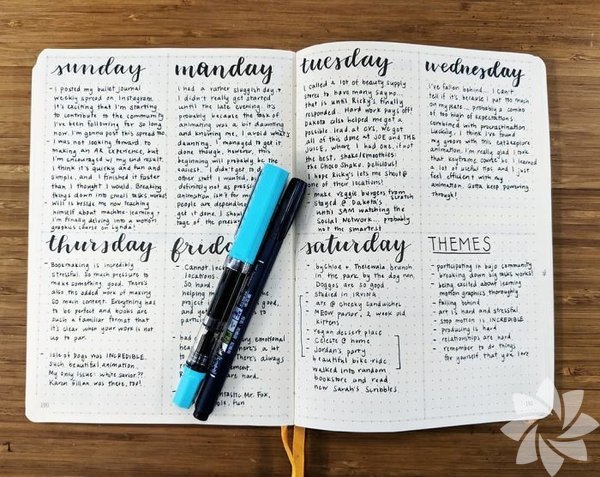 sunday
- I posted my bullet journal
weekly spread on Instagram.
It's exciting that I'm starting
to contribute to the community
I've been following for so long
now. I'm gonna post this spread too
- I was not looking forward to
making an AR experience, but
I'm encouraged w/ my end result.
I think it's quirky and fun and
simple, and I finished it faster
than I thought I would. Breaking
things down into small tasks works!
- Will is beside me now teaching
himself about machine learning &
I'm finally delving into a motion
graphics course on Lynda!
monday
I had a rather sluggish day &
I didn't really get started
until the late evening. It's
probably because the task of
animating was a bit daunting
and knowing me, I avoid what's
daunting. I managed to get it
done though, however, this
beginning will probably be the
easiest. I didn't get to do
other stuff I wanted, but
definitely not as precise
animation isn't for me
people are depending
get it done. I should
stage of the project
tuesday
I called a lot of beauty supply
stores to have many say no...
that is until Ricky's finally
responded. Hard work pays off!
Dakota also helped me get a
possible lead at CVS. We got
all of this done at JOE and THE
JUICE, where I had one, if not
the best, shake/smoothies:
the Choco Shake. Delicious!
I hope Ricky's lets me shoot @
one of their locations!
- make veggie burgers from scratch
- stayed @ Dakota's
until 3AM watching the
Social Network... probably
not the smartest
wednesday
I've fallen behind... I can't
tell if it's because I put too much
on my plate, probably a combo
of too high of expectations
combined with procrastination.
Luckily, I think I've found
my groove with this
animation. I'm really glad I took
that keyframe course so I learned
a lot of useful tips and I just
feel efficient with my
animation. Gotta keep powering
through!
thursday
- Bookmaking is incredibly
stressful. So much pressure to
make something good. There's
also the added work of making
so much content. Everything has
to be perfect and books are
such a familiar format that
it's clear when your work is not
up to par.
- Isle of Dogs was INCREDIBLE.
Such beautiful animation.
My only issue: white savior??
Karen Gillan was there, too!
friday
- Cannot
locations
So hard
helping
project
into the
the
are
- having emotional
there's a lot
There's always
improvement.
are hard.
- Fantastic Mr. Fox,
fun
saturday
- by Chloe & Thelewala brunch
in the park by the dog run.
Doggos are so good
- studied in IRVING
- ate @ Cheeky Sandwiches
- MEOW parlour, 2 week old
kittens
- vegan dessert place
- Celeste @ home
- Jordan's party
- beautiful bike ride
walked into random
bookstore and read
new Sarah's Scribbles
THEMES
- participating in bujo community
- breaking down big tasks works!
- being excited about learning
motion graphics thoroughly
- falling behind
- art is hard and stressful
- stop motion is INCREDIBLE
- producing is hard
- relationships are hard
- remember to do things
for yourself that you love